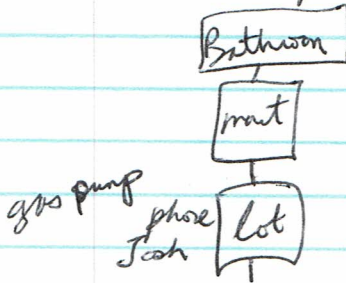 Bathroom
mart
gas pump
phone lot
Josh